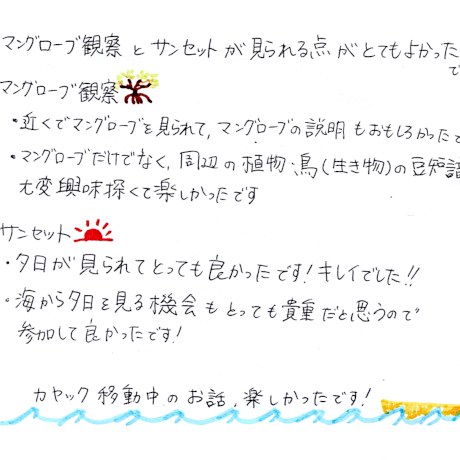 マングローブ観察 と サンセット が 見られる点 がとてもよかった
で
マングローブ観察
・近くでマングローブを見られて、マングローブの説明もおもしろかったで
・マングローブだけでなく、周辺の植物・鳥(生き物)の豆知識
大変興味深くて楽しかったです
サンセット
・夕日が見られてとっても良かったです!キレイでした!!
・海から夕日を見る機会もとっても貴重だと思うので
参加して良かったです!
カヤック移動中のお話、楽しかったです!